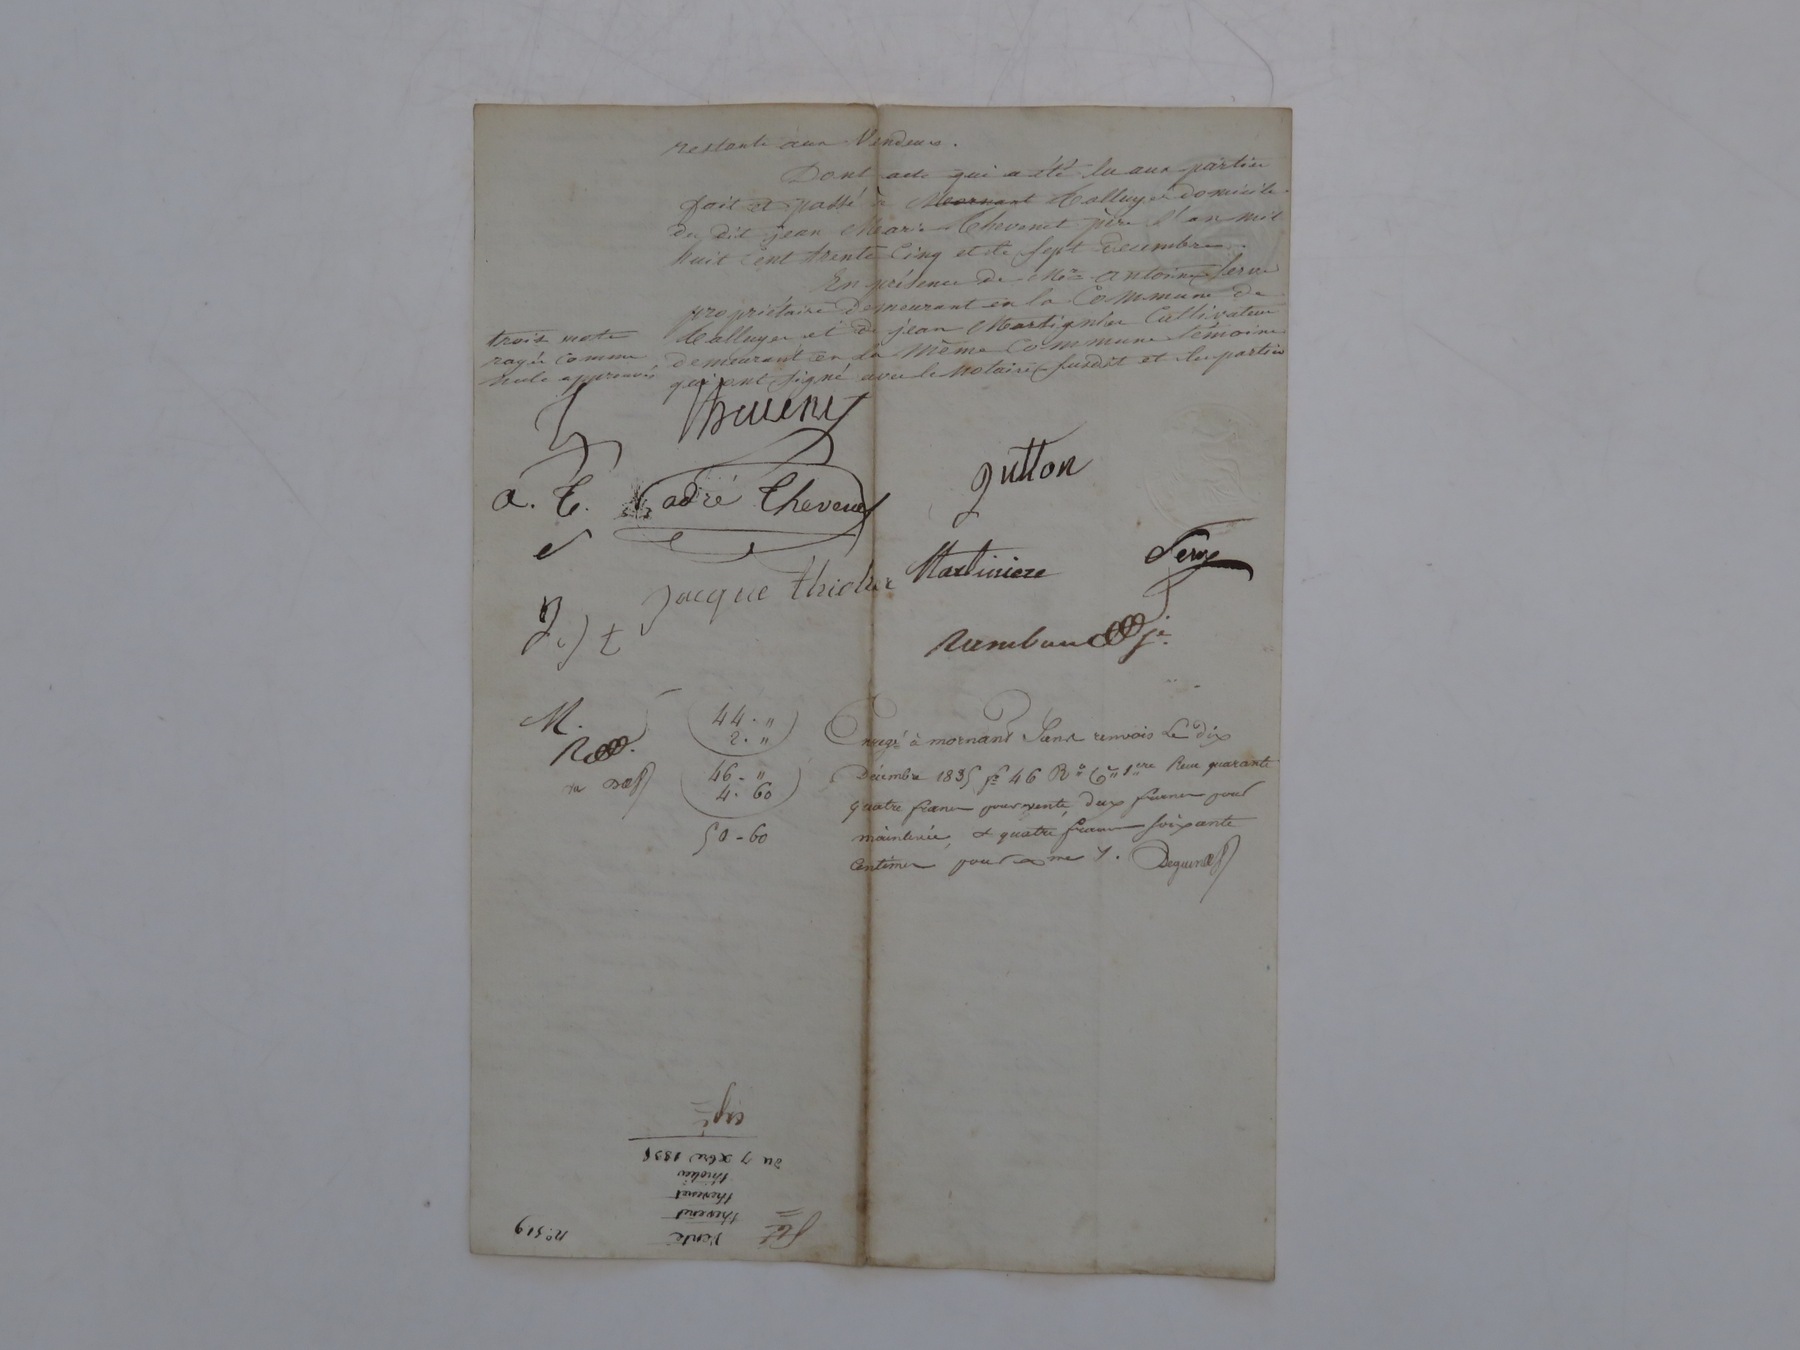 restante aux Vendeurs.
Dont acte qui a été lu aux parties
fait et passé à Mornant Talluyer domicile
du dit jean Marie Thevenet père l'an mil
huit cent trente cinq et le sept Decembre.
En présence de Antoine Serve
propriétaire demeurant en la Commune de
Talluyer et de jean Martinière Cultivateur
demeurant en la même Commune témoins
qui ont signé avec le Notaire susdit et les parties
trois mots
rayés comme
nuls approuvés
Thevenet
Jutton
a. T.
adré Thevenet
Martiniere
Serve
jacque thiolier
j. t
M.
44. "
2. "
46. "
4. 60
50-60
Enregé à mornant sans renvois Le dix
Décembre 1835 fo 46 Ro Ce 1ere Reçu quarante
quatre francs pour vente, deux francs pour
mainlevée, & quatre francs soixante
centimes pour
expé
du 7 xbre 1835
thiolier
thevenet
thevenet
Vente
no. 519